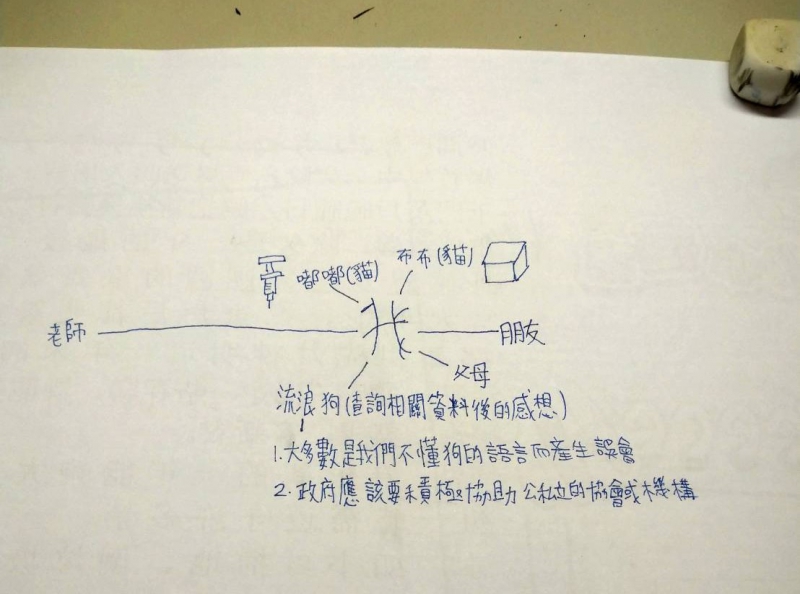 布布(貓)
嘟嘟(貓)
老師
我
朋友
父母
流浪狗(查詢相關資料後的感想)
1.大多數是我們不懂狗的語言而產生誤會
2.政府應該要積極協助公私立的協會或機構